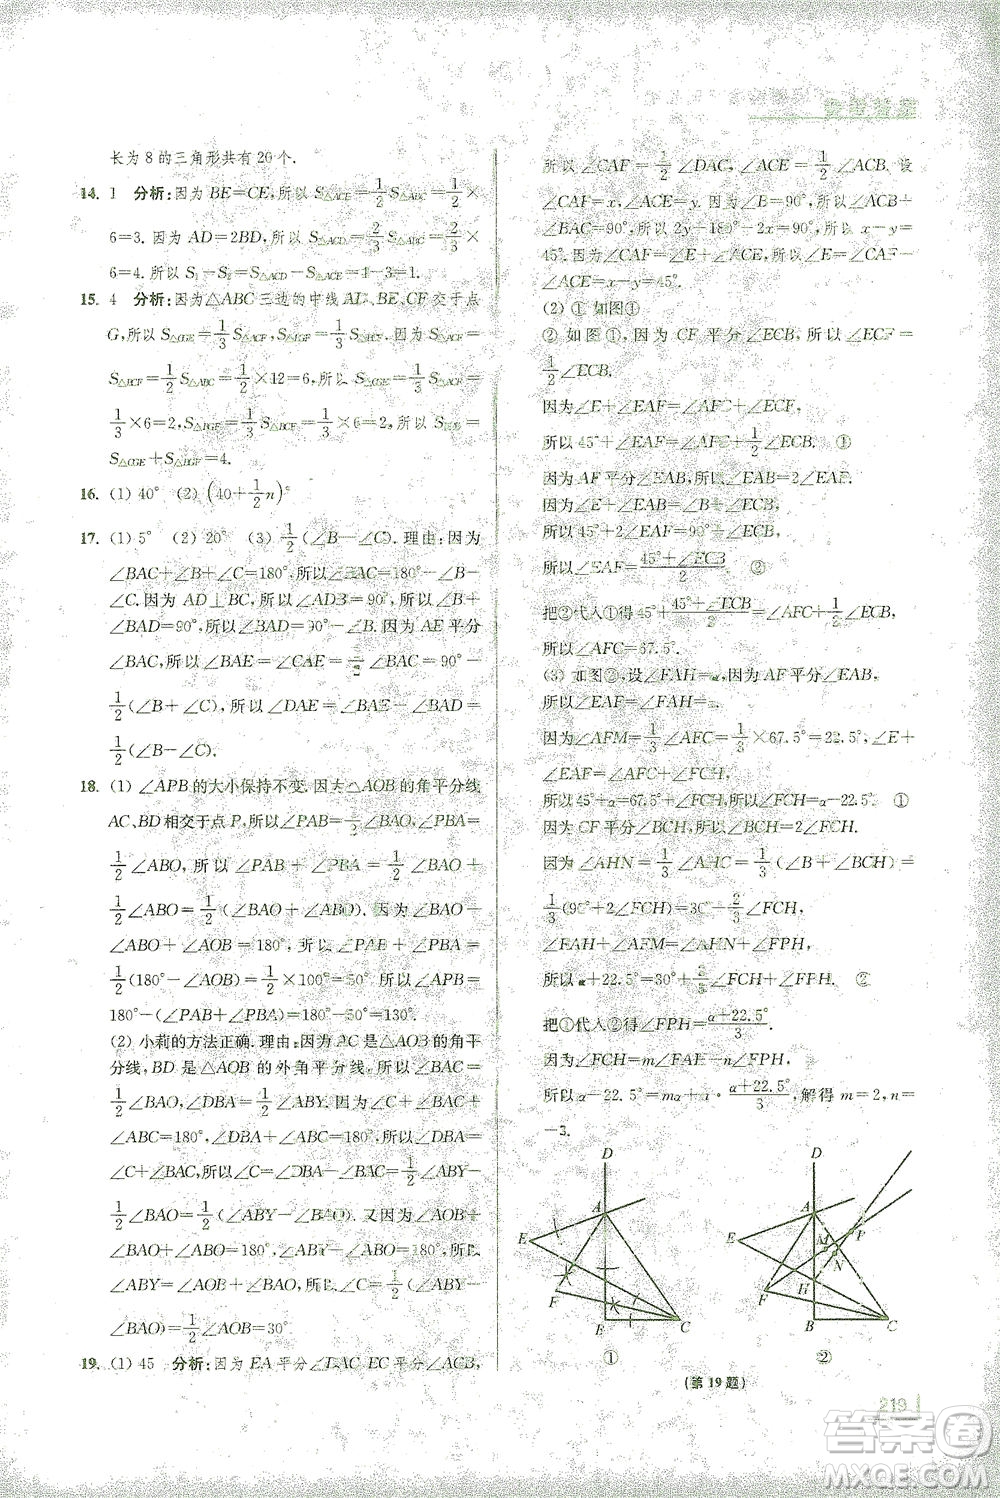 长为 8 的三角形共有 20 个.
14. 1 分析:因为 BE=CE,所以 S△ACE=1/2 S△ABC=1/2×
6=3. 因为 AD=2BD,所以 S△ACD=2/3 S△ABC=2/3×
6=4. 所以 S₁-S₂=S△ACD-S△ACE=4-3=1.
15. 4 分析:因为△ABC 三边的中线 AD、BE、CF 交于点
G,所以 S△CGE=1/3 S△ACF, S△BGF=1/3 S△BCF. 因为
S△BCF=1/2 S△ABC=1/2×12=6,所以 S△CGE=1/3 S△ACF=
1/3×6=2, S△BGF=1/3 S△BCF=1/3×6=2. 所以 S阴影=
S△CGE+S△BGF=4.
16. (1) 40° (2) (40+1/2 n)°
17. (1) 5° (2) 20° (3) 1/2(∠B-∠C). 理由:因为
∠BAC+∠B+∠C=180°,所以∠BAC=180°-∠B-
∠C. 因为 AD⊥BC,所以∠ADB=90°,所以∠B+
∠BAD=90°,所以∠BAD=90°-∠B. 因为 AE 平分
∠BAC,所以∠BAE=∠CAE=1/2∠BAC=90°-
1/2(∠B+∠C),所以∠DAE=∠BAE-∠BAD=
1/2(∠B-∠C).
18. (1) ∠APB 的大小保持不变. 因为△AOB 的角平分线
AC、BD 相交于点 P,所以∠PAB=1/2∠BAO,∠PBA=
1/2∠ABO,所以∠PAB+∠PBA=1/2∠BAO+
1/2∠ABO=1/2(∠BAO+∠ABO). 因为∠ABO+
∠BAO+∠AOB=180°,所以∠PAB+∠PBA=
1/2(180°-∠AOB)=1/2×100°=50°,所以∠APB=
180°-(∠PAB+∠PBA)=180°-50°=130°.
(2) 小莉的方法正确. 理由:因为 AC 是△AOB 的角平
分线,BD 是△AOB 的外角平分线,所以∠BAC=
1/2∠BAO,∠DBA=1/2∠ABY. 因为∠C+∠BAC+
∠ABC=180°,∠DBA+∠ABC=180°,所以∠DBA=
∠C+∠BAC,所以∠C=∠DBA-∠BAC=1/2∠ABY-
1/2∠BAO=1/2(∠ABY-∠BAO). 又因为∠ABY+
∠ABO=180°,∠BAO+∠AOB+∠ABO=180°,所以
∠ABY=∠AOB+∠BAO,所以∠C=1/2(∠ABY-
∠BAO)=1/2∠AOB=30°.
19. (1) 45 分析:因为 EA 平分∠DAC,EC 平分∠ACB,
所以∠CAF=1/2∠DAC,∠ACE=1/2∠ACB. 设
∠CAF=x,∠ACE=y. 因为∠B=90°,所以∠ACB+
∠BAC=90°,所以 2y+180°-2x=90°,所以 x-y=
45°. 所以∠E=∠CAF-∠ACE=x-y=45°.
(2) ① 如图①
② 如图①,因为 CF 平分∠ECB,所以∠ECF=
1/2∠ECB.
因为∠E+∠EAF=∠AFC+∠ECF,
所以 45°+∠EAF=∠AFC+1/2∠ECB. ①
因为 AF 平分∠EAB,所以∠EAB=2∠EAF.
因为∠E+∠EAB=∠B+∠ECB,
所以 45°+2∠EAF=90°+∠ECB,
所以∠EAF=(45°+∠ECB)/2. ②
把②代入①得 45°+(45°+∠ECB)/2=∠AFC+1/2∠ECB,
所以∠AFC=67.5°.
(3) 如图②,设∠FAH=α,因为 AF 平分∠EAB,
所以∠EAF=∠FAH=α.
因为∠AFM=1/3∠AFC=1/3×67.5°=22.5°,∠E+
∠EAF=∠AFC+∠FCH,
所以 45°+α=67.5°+∠FCH,所以∠FCH=α-22.5°. ①
因为 CF 平分∠BCH,所以∠BCH=2∠FCH.
因为∠AHN=1/3∠AHC=1/3(∠B+∠BCH)=
1/3(90°+2∠FCH)=30°+2/3∠FCH,
∠FAH+∠AFM=∠AHN+∠FPH,
所以 α+22.5°=30°+2/3∠FCH+∠FPH. ②
把①代入②得∠FPH=(α+22.5°)/3.
因为∠FCH=m∠FAH+n∠FPH,
所以 α-22.5°=mα+n·(α+22.5°)/3,解得 m=2,n=
-3.
D
A
E
F
B
C
①
D
A
E
M
P
N
H
F
B
C
②
(第 19 题)
219
答案圈
MXQE.COM